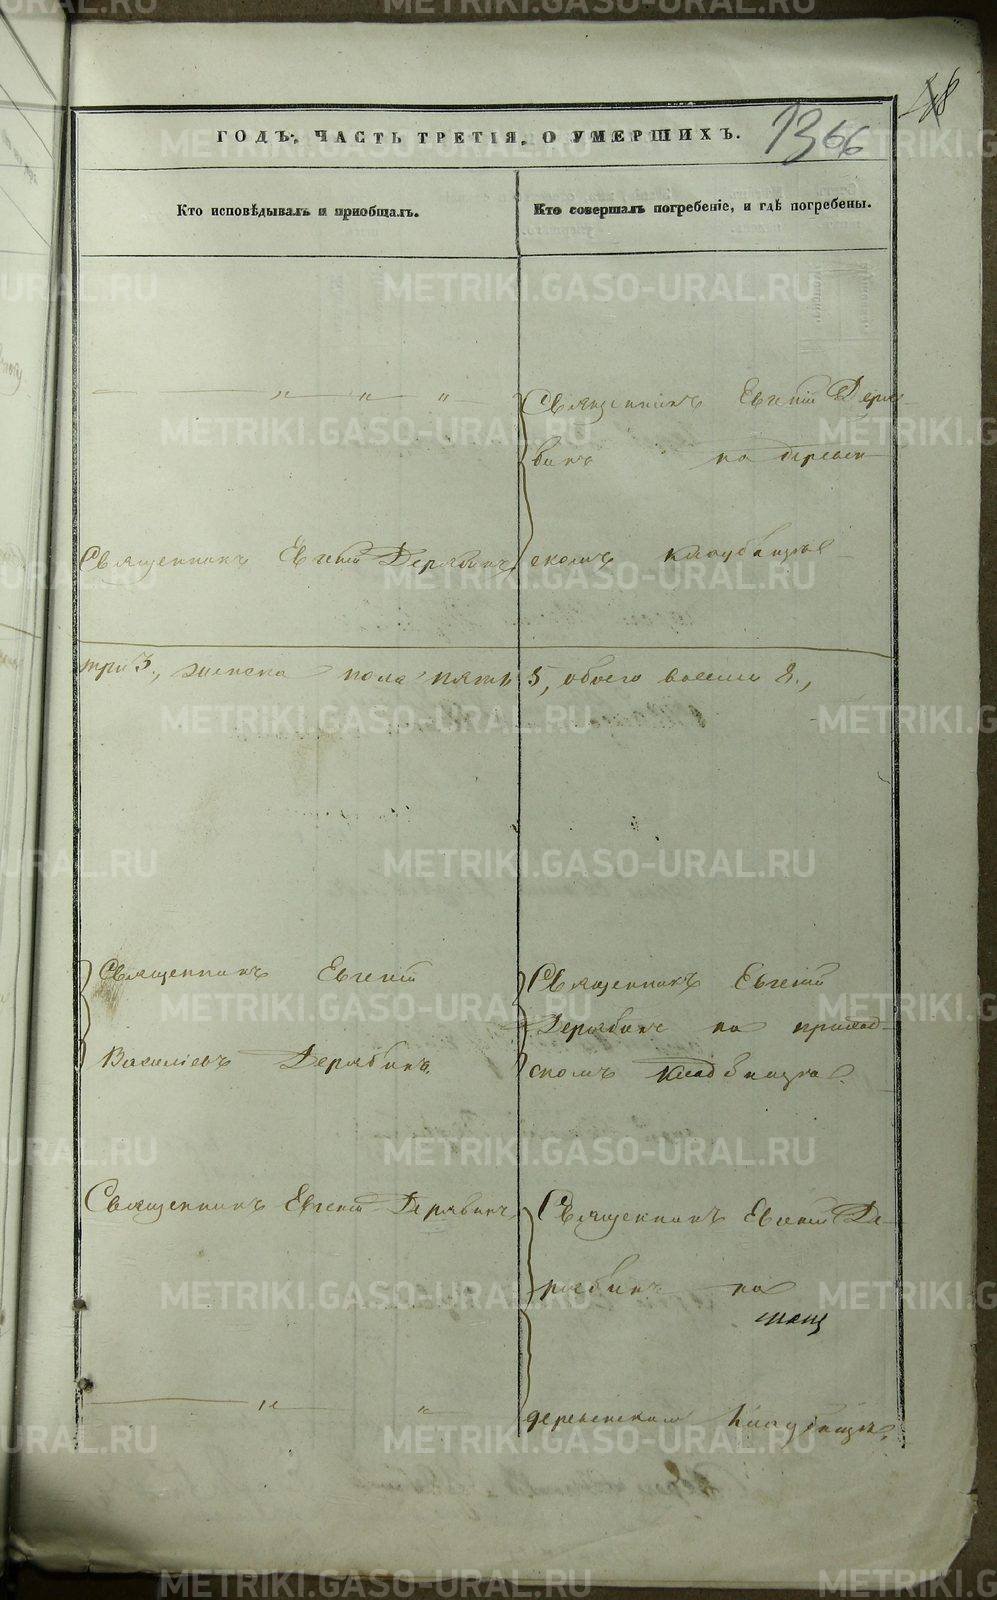 48
ГОДЪ, ЧАСТЬ ТРЕТІЯ, О УМЕРШИХЪ.
1366
Кто исповѣдывалъ и пріобщалъ.
Кто совершалъ погребеніе, и гдѣ погребены.
— „ — „ — „ —
Священникъ Евгеній Деря-
бинъ на деревен
Священникъ Евгеній Дерябинъ,
скомъ кладбищѣ
три 3., женска пола пять 5, обоего восемь 8.,
Священникъ Евгеній
Васильевъ Дерябинъ.
Священникъ Евгеній
Дерябинъ на приход-
скомъ кладбищѣ.
Священникъ Евгеній Дерябинъ,
Священникъ Евгеній Де-
рябинъ на
— „ — „
деревенскомъ кладбищѣ.
METRIKI.GASO-URAL.RU